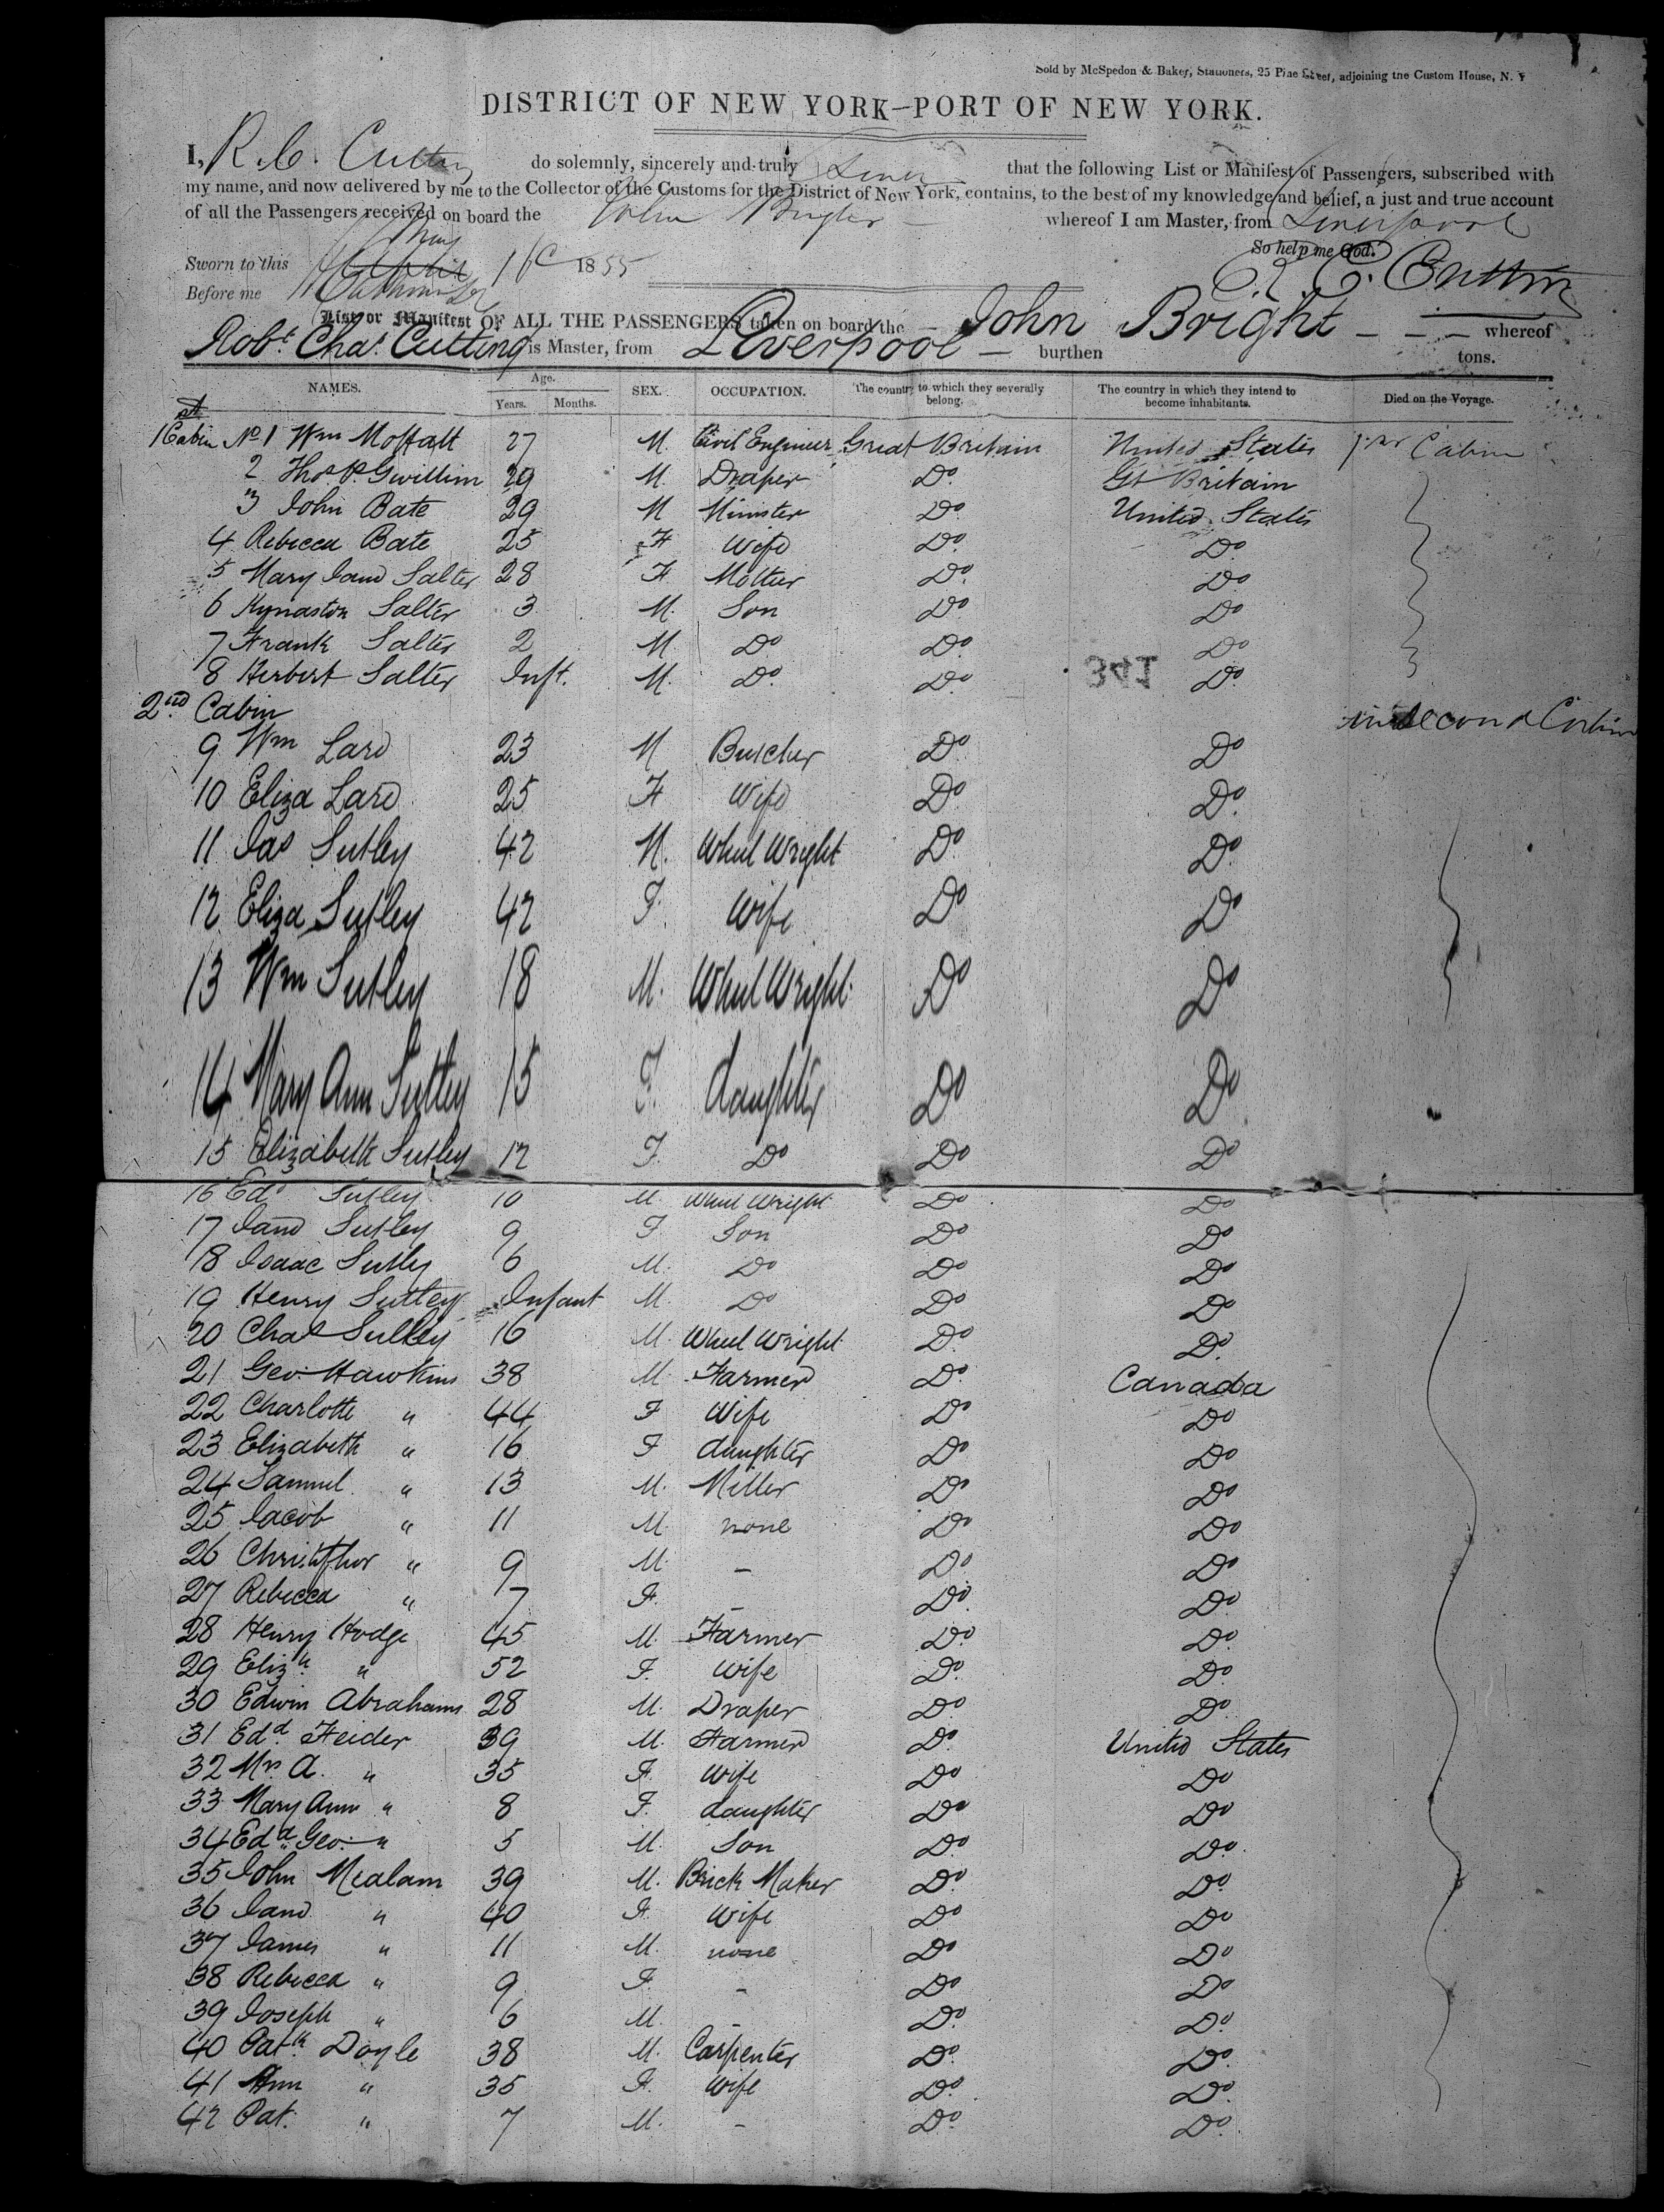 Sold by McSpedon & Baker, Stationers, 25 Pine Street, adjoining the Custom House, N. Y
DISTRICT OF NEW YORK—PORT OF NEW YORK.
I, R. C. Cutting do solemnly, sincerely and truly Swear that the following List or Manifest of Passengers, subscribed with
my name, and now delivered by me to the Collector of the Customs for the District of New York, contains, to the best of my knowledge and belief, a just and true account
of all the Passengers received on board the John Bright whereof I am Master, from Liverpool
So help me God.
Sworn to this May 1855
R. C. Cutting
Before me
List or Manifest OF ALL THE PASSENGERS taken on board the John Bright whereof
Robt. Chas. Cutting is Master, from Liverpool burthen tons.
NAMES. Age. Years. Months. SEX. OCCUPATION. The country to which they severally belong. The country in which they intend to become inhabitants. Died on the Voyage.
1st Cabin No 1 Wm Moffatt 27 M. Civil Engineer Great Britain United States Cabin
2 Thos P. Gwillim 29 M. Draper Do. Gt Britain
3 John Bate 29 M Minister Do. United States
4 Rebecca Bate 25 F Wife Do. Do.
5 Mary Jane Salter 28 F Mother Do. Do.
6 Kynaston Salter 3 M. Son Do Do
7 Frank Salter 2 M. Do Do. Do
8 Herbert Salter Inft. M. Do. Do. Do.
341
2nd Cabin in Second Cabin
9 Wm Lard 23 M Butcher Do. Do
10 Eliza Lard 25 F Wife Do. Do.
11 Jas Sutley 42 M. Wheel Wright Do. Do.
12 Eliza Sutley 42 F. Wife Do Do
13 Wm Sutley 18 M. Wheel Wright Do Do
14 Mary Ann Sutley 15 F. daughter Do Do
15 Elizabeth Sutley 12 F. Do Do Do
16 Edd Sutley 10 M. Wheel Wright Do Do
17 Jane Sutley 9 F Son Do Do
18 Isaac Sutley 6 M. Do Do Do
19 Henry Sutley Infant M. Do Do Do
20 Chas Sutley 16 M Wheel Wright Do. Do.
21 Geo Hawkins 38 M Farmer Do. Canada
22 Charlotte " 44 F Wife Do Do
23 Elizabeth " 16 F daughter Do Do
24 Samuel " 13 M. Miller Do Do
25 Jacob " 11 M none Do Do
26 Christopher " 9 M. – Do Do
27 Rebecca " 7 F. – Do. Do.
28 Henry Hodge 45 M. Farmer Do. Do.
29 Elizh " 52 F. Wife Do. Do.
30 Edwin Abrahams 28 M. Draper Do Do
31 Edd. Feider 39 M. Farmer Do. United States
32 Mrs A. " 35 F. Wife Do Do
33 Mary Ann " 8 F. daughter Do Do
34 Edd. Geo. " 5 M. Son Do. Do.
35 John Mealam 39 M. Brick Maker Do. Do.
36 Jane " 40 F. Wife Do Do
37 James " 11 M. none Do Do
38 Rebecca " 9 F. – Do Do
39 Joseph " 6 M. – Do. Do.
40 Patk. Doyle 38 M. Carpenter Do. Do.
41 Ann " 35 F. Wife Do. Do.
42 Pat. " 7 M. – Do. Do.